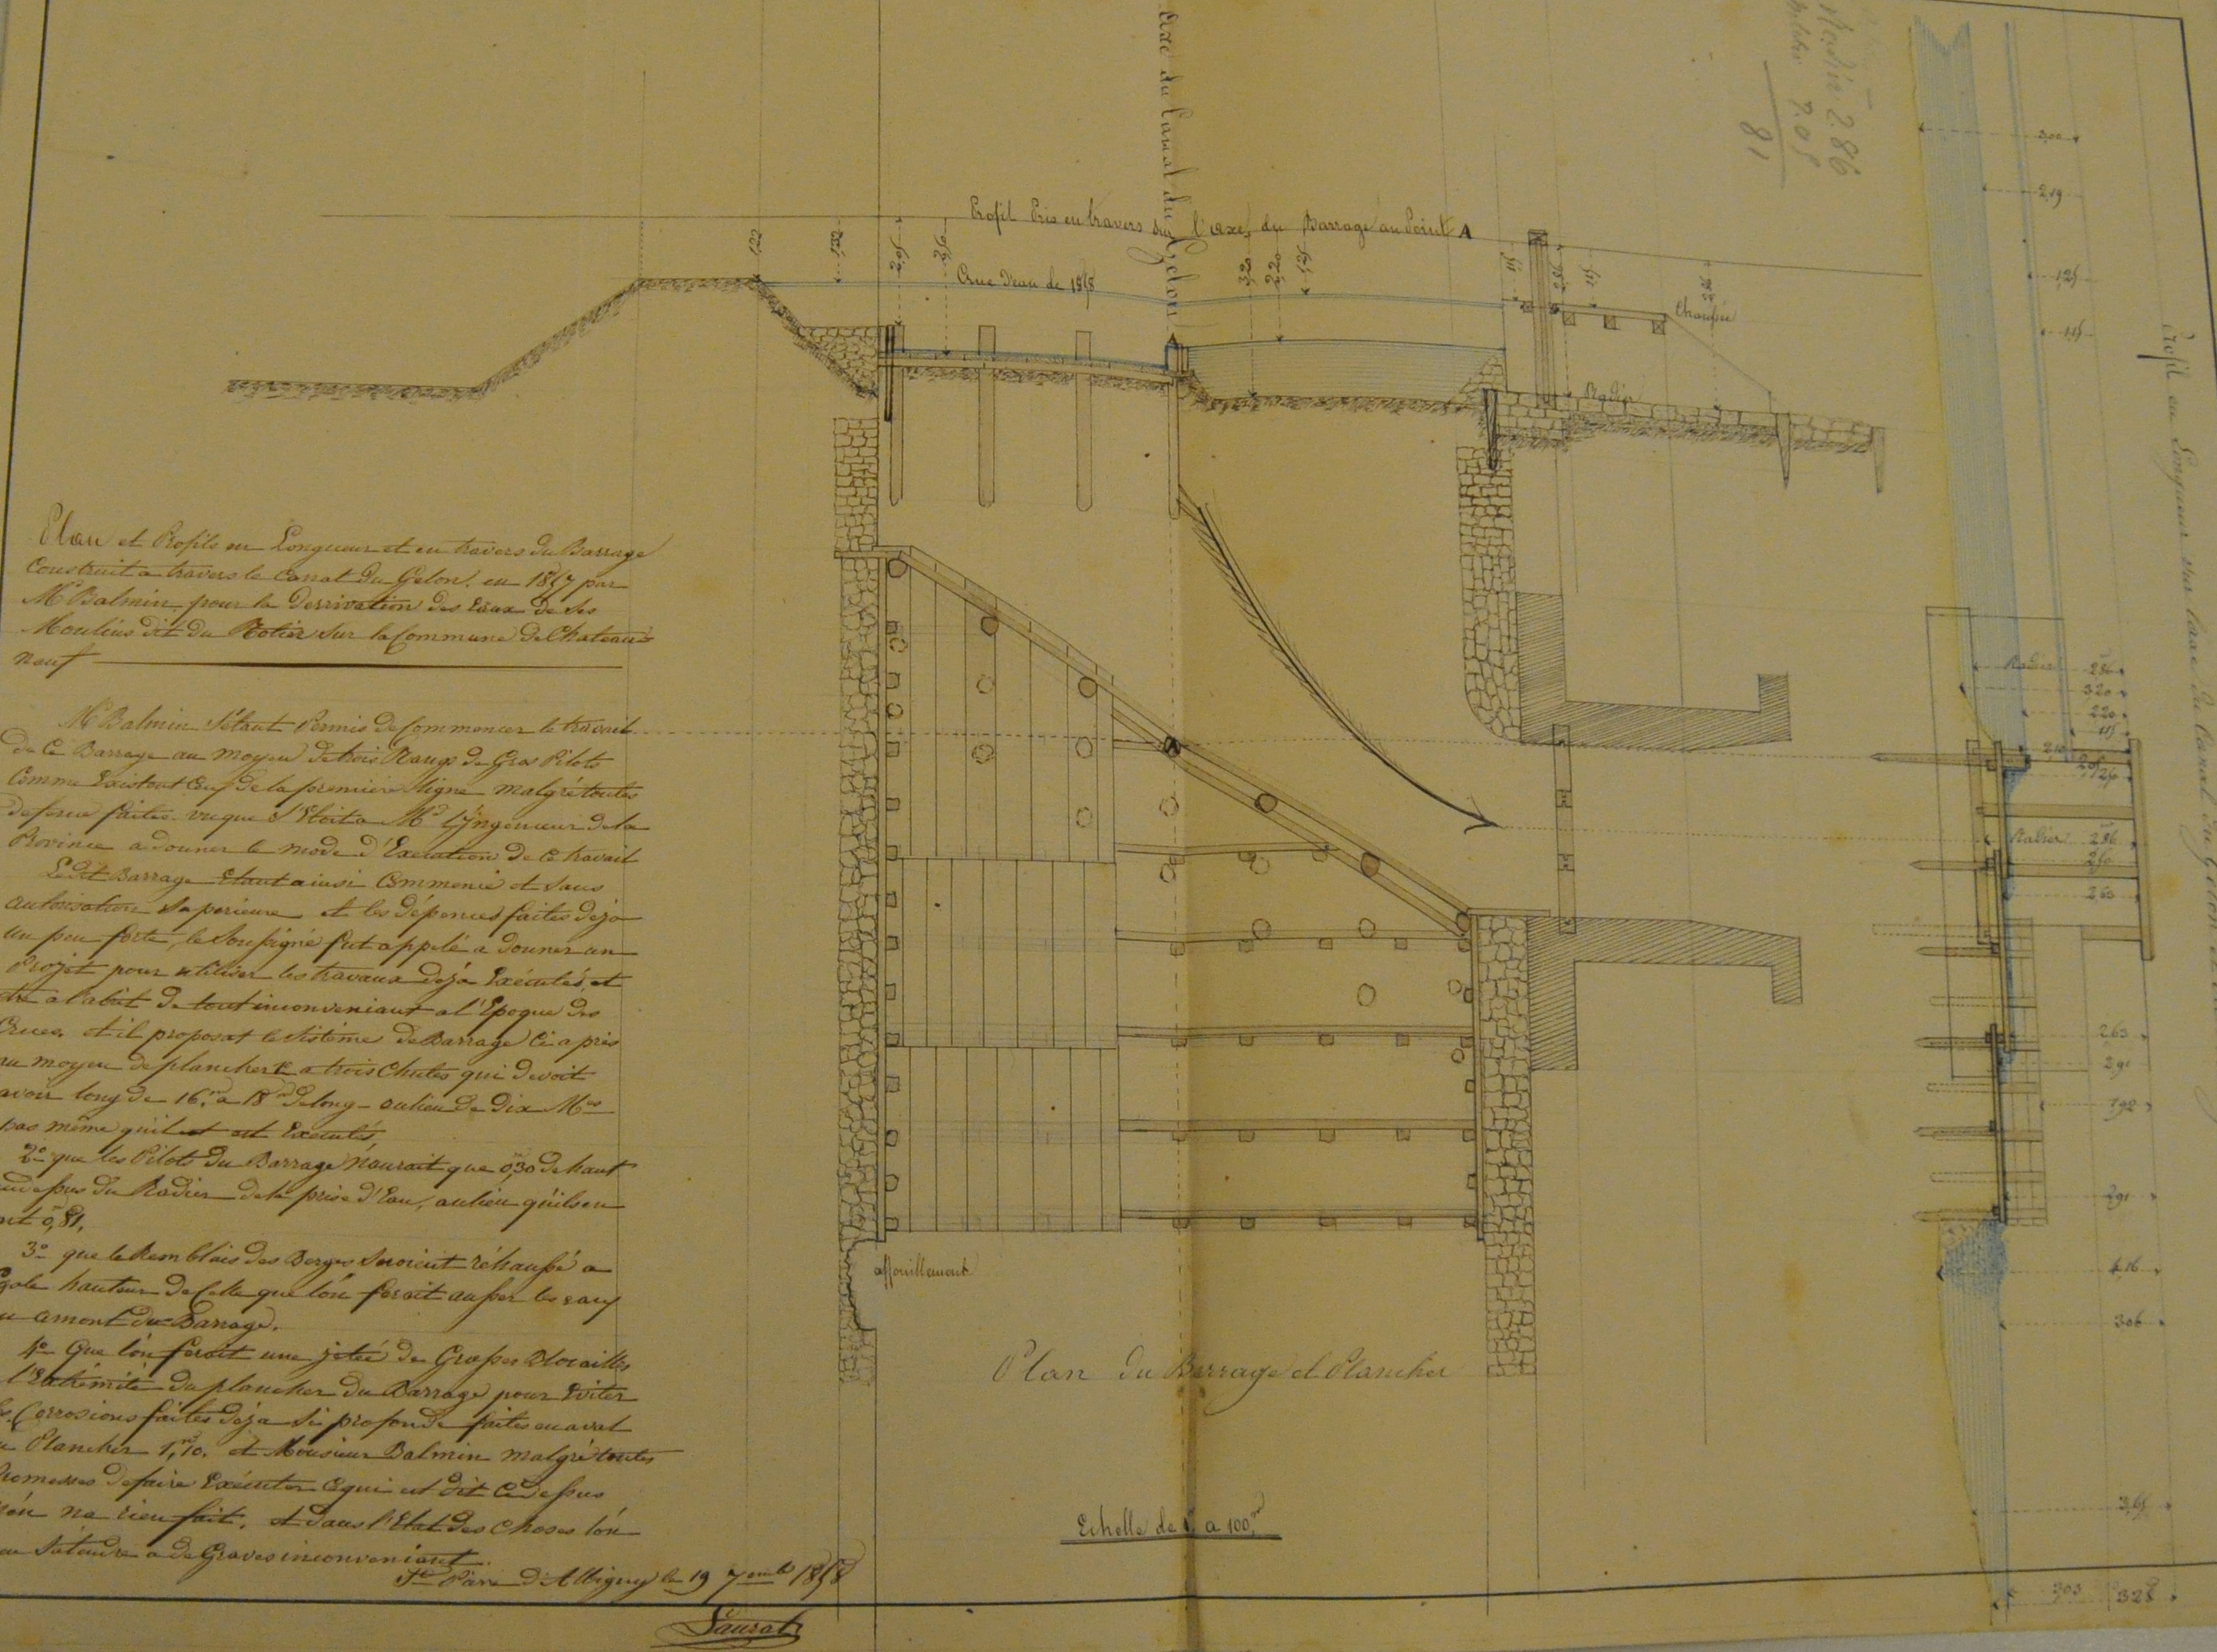 Axe du Canal du Gelon
Radier 2.86
7.05
81
Profil Pris en travers sur l'axe, du Barrage au Point A
Crue d'eau de 1858
Chaussée
Radier
Plan et Profils en Longueur et en travers du Barrage
Construit a travers le Canal du Gelon. en 1857 par
Mr Balmin, pour la Derrivation des Eaux de Ses
Moulins dit du Rotier sur la Commune de Chateau-
neuf
Mr Balmin S'étant Permis de Commencer le travail
de Ce Barrage au moyen de trois Rangs de Gros Pilots
Comme Existent Ceuf de la premiere ligne malgré toutes
defence faites. vu que c'Etoit a Mr L'Ingenieur de la
Province a douner le mode d'Execution de Ce travail
Ledit Barrage Etant ainsi Commencé et sans
autorisation Superieure et les dépences faites deja
un peu forte, le Soussigné fut appelé a douner un
Projet pour utiliser les travaux deja Exécutés, et
a l'abit de tout inconveniant a l'Epoque des
Crues. et il proposat le Sistème de Barrage Ci a près
au moyen de plancher a trois Chutes qui devoit
avoir long de 16m a 18m de long au lieu de Dix Mes
pas même qu'il est Executés,
2o que les Pilots du Barrage n'aurait que 0m,30 de haut
audessus du Radier de la prise d'Eau, au lieu qu'ils en
ont 0m,81.
3o que le Remblais des Berges Seroient réhaussé a
egale hauteur de Celle que l'ón feroit ausser les eaux
en amont du Barrage.
4o Que l'ón feroit une jetée de Grosses Rocailles
a l'Extrémité du plancher du Barrage pour Eviter
les Corrosions faites deja Si profonde faites en aval
du Plancher 1m,10. et Monsieur Balmin malgré toutes
Promesses de faire Exécuter Ce qui est dit Ci dessus
l'ón na rien fait. et dans l'Etat des Choses l'ón
Sátendre a de Graves inconveniant.
St Pierre d'Albigny le 19 7embre 1858
Laurat
affouillement
Plan du Barrage et Plancher
Echelle de 1 a 100m
A
Profil en Longueur sur l'axe du Canal du Gelon
3,00
2,19
1,25
1,15
Radier 2.86
3.20
2.20
1,15
Radier 2.86
2.63
2.63
2.91
1.92
2.91
4.16
3.06
3.65
3.03
3.28